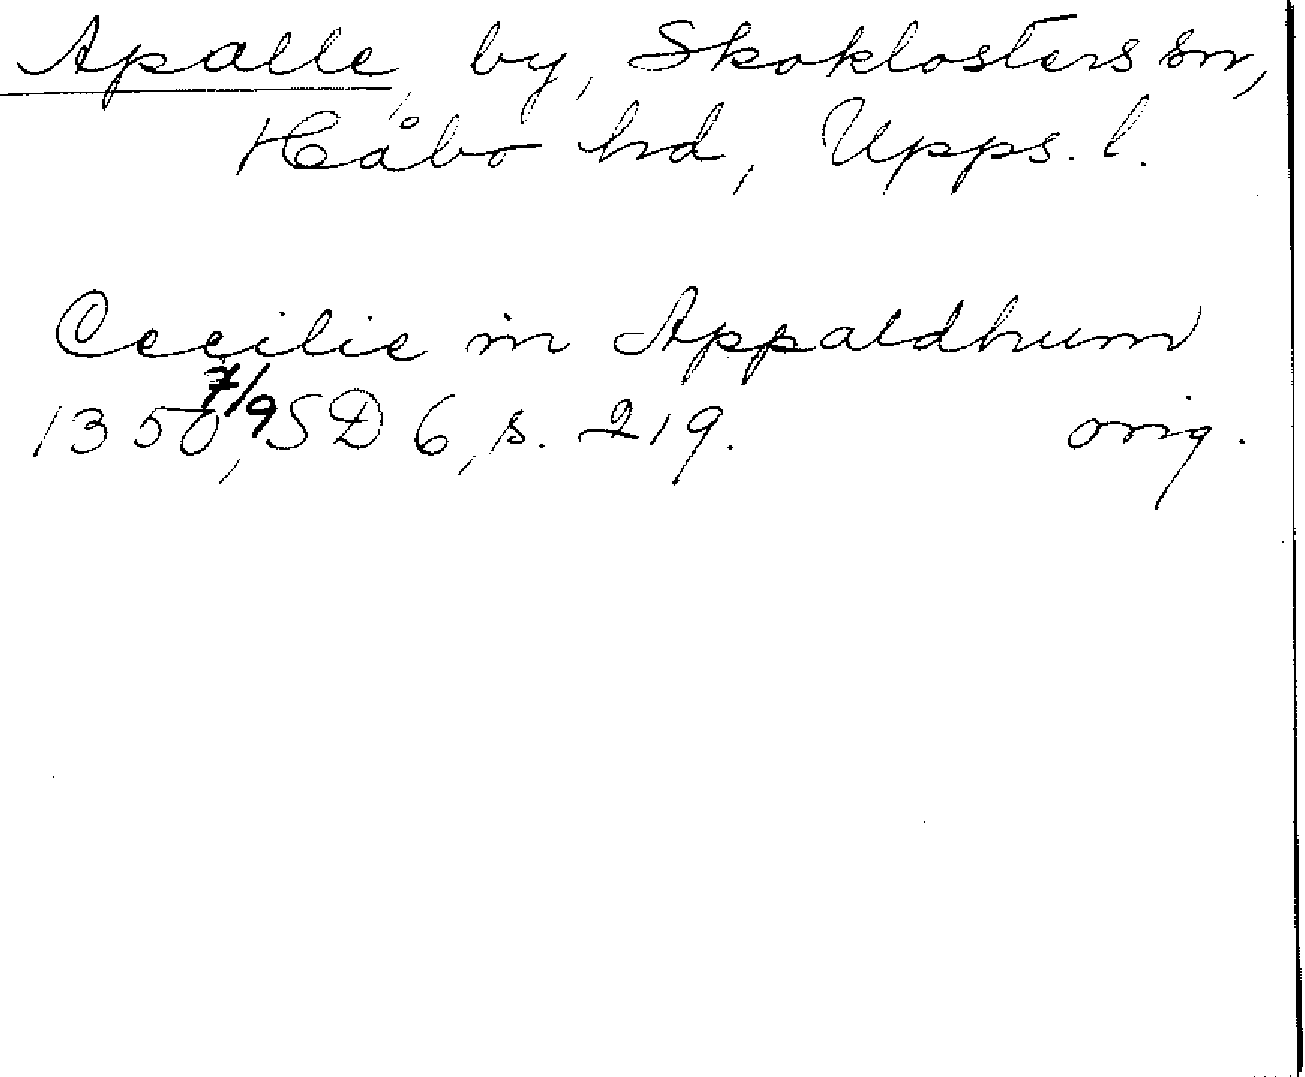 Apalle, by, Skoklosters sn,
Håbo hd, Upps. l.
Cecilie in Appaldhum
1350 7/9, SD 6, s. 219. orig.